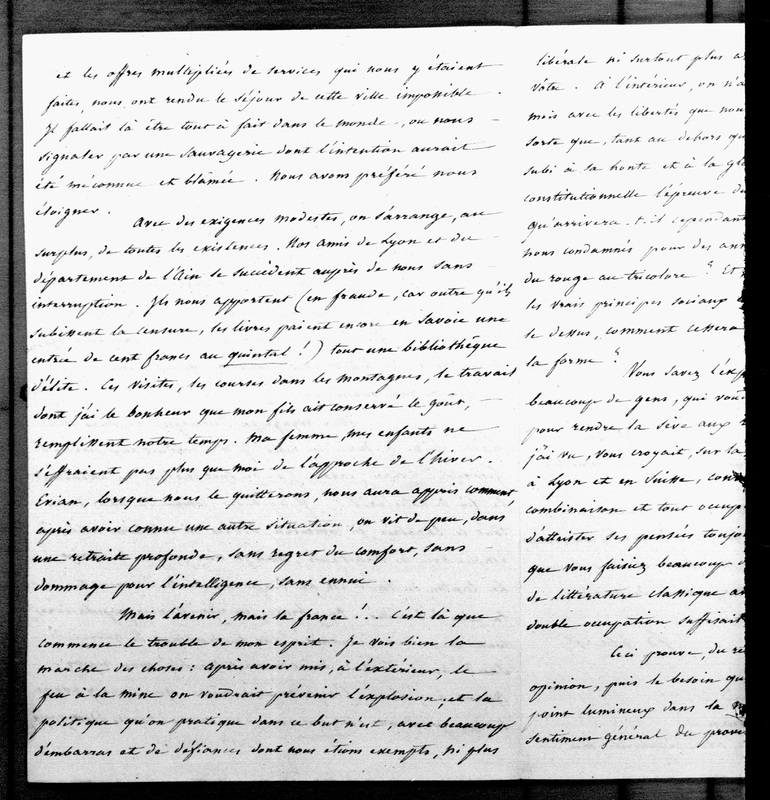 et les offres multipliées de services qui nous y étaient
faites, nous ont rendu le séjour de cette ville impossible.
Il fallait là être tout à fait dans le monde –, ou nous –
signaler par une sauvagerie dont l'intention aurait
été méconnue et blâmée. Nous avons préféré nous
éloigner.
Avec des exigences modestes, on s'arrange, au
surplus, de toutes les existences. Nos amis de Lyon et du –
département de l'Ain se succèdent auprès de nous sans
interruption. Ils nous apportent (en fraude, car outre qu'ils
subissent la censure, les livres paient encore en Savoie une
entrée de cent francs au quintal!) tout une bibliothèque
d'élite. Ces visites, les courses dans les montagnes, le travail
dont j'ai le bonheur que mon fils ait conservé le goût, –
remplissent notre temps. Ma femme, mes enfants ne
s'effraient pas plus que moi de l'approche de l'hiver.
Evian, lorsque nous le quitterons, nous aura appris comment
après avoir connu une autre situation, on vit de peu, dans
une retraite profonde, sans regret du comfort, sans –
dommage pour l'intelligence, sans ennui.
Mais l'avenir, mais la france!... C'est là que
commence le trouble de mon esprit. Je vois bien la
marche des choses: après avoir mis, à l'extérieur, le
feu à la mine on voudrait prévenir l'explosion; et la
politique qu'on pratique dans ce but n'est, avec beaucoup
d'embarras et de défiances dont nous étions exempts, ni plus
libérale ni surtout plus
vôtre. À l'intérieur, on n'a
mais avec les libertés que nou
sorte que, tant au dehors qu
subi à sa honte et à la glo
constitutionnelle l'épreuve de
qu'arrivera-t-il cependant
nous condamnés pour des ann
du rouge au tricolore? Et
les vrais principes sociaux
le dessus, comment cessera
la forme?
Vous savez l'exp
beaucoup de gens, qui voud
pour rendre la sève aux
j'ai vu, vous croyait, sur la
à Lyon et en Suisse, conn
combinaison et tout occup
d'attrister ses pensées toujo
que vous faisiez beaucoup
de littérature classique
double occupation suffisait
Ceci prouve, du re
opinion, puis le besoin qu
point lumineux dans la
sentiment général du prove